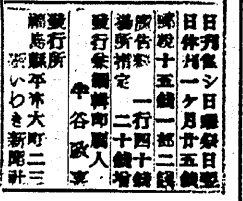 日刊但シ日曜祭日翌
日休刊一ケ月廿五銭
郵税十五銭一部二銭
広告料 一行四十銭
場所指定 二十銭増
発行兼編輯印刷人
發行所
福島県平市大町二三
いわき新聞社